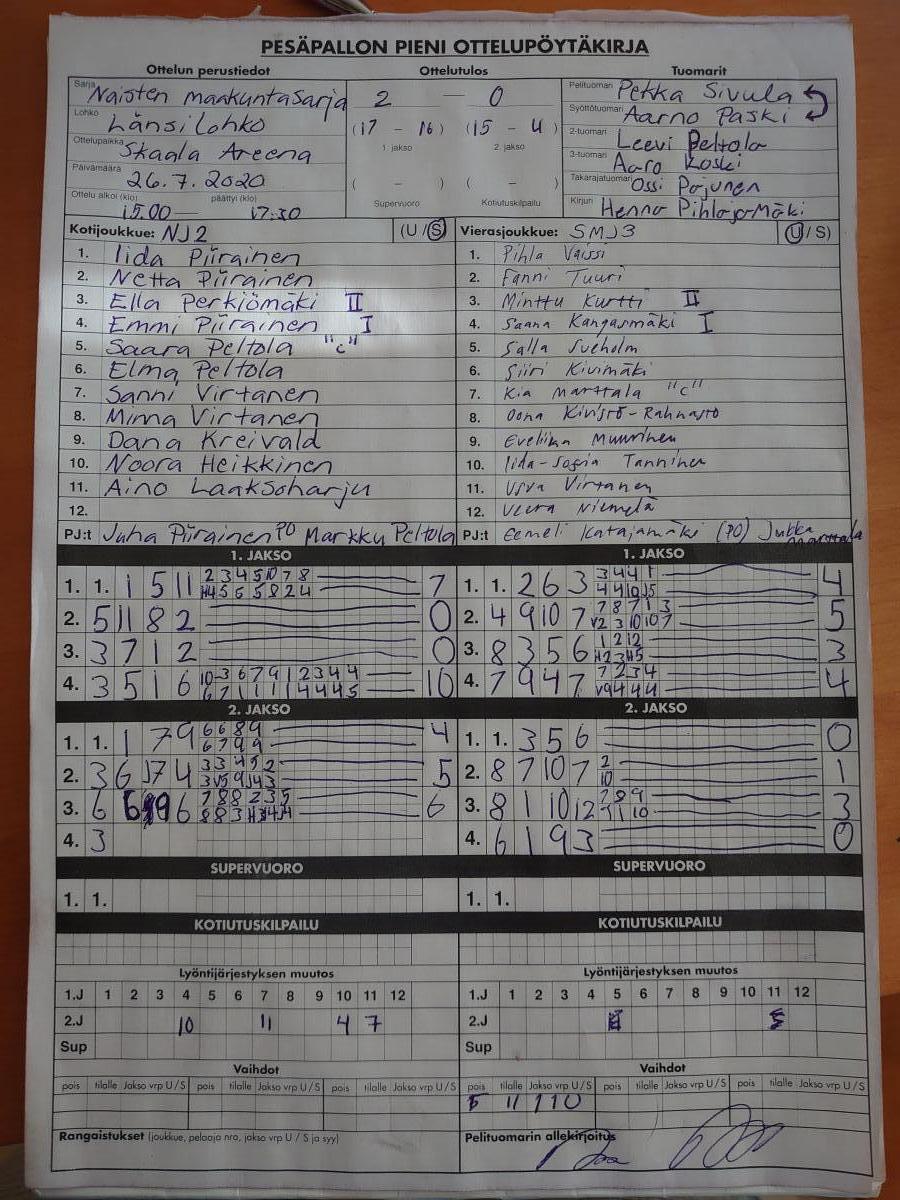 PESÄPALLON PIENI OTTELUPÖYTÄKIRJA
Ottelun perustiedot Ottelutulos Tuomarit
Sarja Naisten maakuntasarja
Lohko Länsilohko
Ottelupaikka Skaala Areena
Päivämäärä 26.7.2020
Ottelu alkoi (klo) päättyi (klo)
15.00 — 17:30
2 — 0
(17 - 16) (15 - 4)
1. jakso 2. jakso
( - ) ( - )
Supervuoro Kotiutuskilpailu
Pelituomari Pekka Sivula
Syöttötuomari Aarno Paski
2-tuomari Leevi Peltola
3-tuomari Aaro Koski
Takarajatuomari Ossi Pojunen
Kirjuri Henna Pihlajamäki
Kotijoukkue: NJ2 (U/S)
1. Iida Piirainen
2. Netta Piirainen
3. Ella Perkiömäki II
4. Emmi Piirainen I
5. Saara Peltola "c"
6. Elma Peltola
7. Sanni Virtanen
8. Minna Virtanen
9. Dana Kreivald
10. Noora Heikkinen
11. Aino Laaksoharju
12.
PJ:t Juha Piirainen PO Markku Peltola
Vierasjoukkue: SMJ3 (U/S)
1. Pihla Vaissi
2. Fanni Tuuri
3. Minttu Kurtti II
4. Saana Kangasmäki I
5. Salla Sveholm
6. Siiri Kivimäki
7. Kia Marttala "c"
8. Oona Kivistö-Rahnasto
9. Eveliina Muurinen
10. Iida-Sofia Tanninen
11. Virtanen
12. Veera Niemelä
PJ:t Eemeli Katajamäki (PO) Jukka Marttala
1. JAKSO
1. 1. 1 5 11 2 3 4 5 10 7 8 7
2. 5 11 8 2 0
3. 3 7 1 2 0
4. 3 5 1 6 10 3 6 7 9 1 2 3 4 4 10
6 7 1 1 1 1 4 4 4 5
1. JAKSO
1. 1. 2 6 3 4
2. 4 9 10 7 7 8 7 1 3 5
3. 8 3 5 6 1 2 12 3
4. 7 9 4 7 7 2 3 4 4
2. JAKSO
1. 1. 1 7 9 6 6 8 9 4
6 7 9 9
2. 3 6 4 3 3 4 5 2 5
3. 6 6 7 8 8 2 3 5 6
4. 3
2. JAKSO
1. 1. 3 5 6 0
2. 8 7 10 7 2 1
10
3. 8 1 10 12 7 8 9 3
4. 6 1 9 3 0
SUPERVUORO
1. 1.
SUPERVUORO
1. 1.
KOTIUTUSKILPAILU
KOTIUTUSKILPAILU
Lyöntijärjestyksen muutos
1.J 1 2 3 4 5 6 7 8 9 10 11 12
2.J 10 11 4 7
Sup
Lyöntijärjestyksen muutos
1.J 1 2 3 4 5 6 7 8 9 10 11 12
2.J
Sup
Vaihdot
pois tilalle Jakso vrp U/S pois tilalle Jakso vrp U/S pois tilalle Jakso vrp U/S
Vaihdot
pois tilalle Jakso vrp U/S pois tilalle Jakso vrp U/S pois tilalle Jakso vrp U/S
5 11 1 1 U
Rangaistukset (joukkue, pelaaja nro, jakso vrp U/S ja syy)
Pelituomarin allekirjoitus